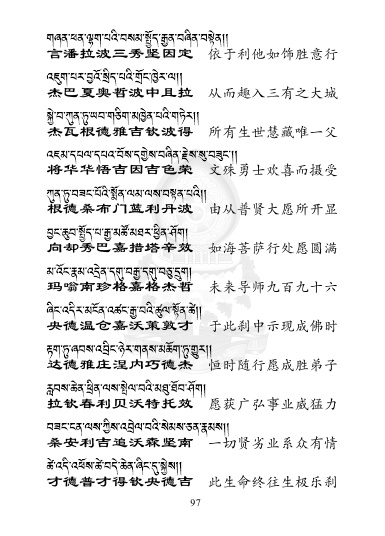 གཞན་ཕན་ལྷག་པའི་བསམ་སྦྱོད་རྒྱན་བཞིན་བསྟེན།།
言潘拉波三秀坚因定 依于利他如饰胜意行
འཇུག་པར་བྱའོ་སྲིད་པའི་གྲོང་ཁྱེར་ལ།།
杰巴夏奥哲波中且拉 从而趣入三有之大城
སྐྱེ་བ་ཀུན་ཏུ་ཡབ་གཅིག་མཁྱེན་པའི་གཏེར།།
杰瓦根德雅吉钦波得 所有生世慧藏唯一父
འཇམ་དཔལ་དཔའ་བོས་དགྱེས་བཞིན་རྗེས་སུ་བཟུང་།།
将华华悟吉因吉色荣 文殊勇士欢喜而摄受
ཀུན་ཏུ་བཟང་པོའི་སྨོན་ལམ་ལས་བསྟན་པའི།།
根德桑布门蓝利丹波 由从普贤大愿所开显
བྱང་ཆུབ་སྤྱོད་པ་རྒྱ་མཚོ་མཐར་ཕྱིན་ཤོག།
向却秀巴嘉措塔辛效 如海菩萨行处愿圆满
མ་འོང་རྣམ་འདྲེན་དགུ་བརྒྱ་དགུ་བཅུ་དྲུག།
玛嗡南珍格嘉格杰哲 未来导师九百九十六
ཞིང་འདིར་མངོན་འཚང་རྒྱ་བའི་ཚུལ་སྟོན་ཚེ།།
央德温仓嘉沃莱敦才 于此刹中示现成佛时
རྟག་ཏུ་ཞབས་འབྲིང་ཉེར་གནས་མཆོག་ཏུ་གྱུར།།
达德雅庄涅内巧德杰 恒时随行愿成胜弟子
རླབས་ཆེན་ཕྲིན་ལས་སྤེལ་བའི་མཐུ་ཐོབ་ཤོག།
拉钦春利贝沃特托效 愿获广弘事业威猛力
བཟང་ངན་ལས་ཀྱིས་འབྲེལ་བའི་སེམས་ཅན་རྣམས།།
桑安利吉追沃森坚南 一切贤劣业系众有情
ཚེ་འདི་འཕོས་ཚེ་བདེ་ཆེན་ཞིང་དུ་སྐྱེས།།
才德普才得钦央德吉 此生命终往生极乐刹
97